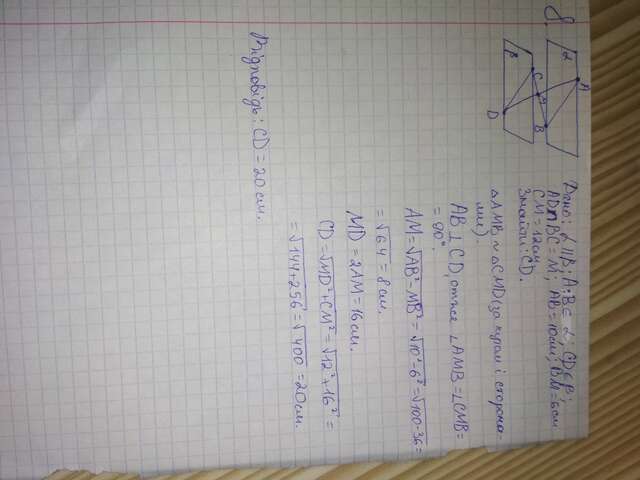 8.
α
A
M
B
β
C
D
Дано: α||β; A;B∈α; CD∈β;
AD∩BC=M; AB=10см; BM=6см
CM=12см.
Знайти: CD.
△AMB ~ △CMD (за кутом і сторона-
ми).
AB⊥CD, отже ∠AMB=∠CMB=
=90°.
AM=√AB²-MB²=√10²-6²=√100-36=
=√64=8см.
MD=2AM=16см.
CD=√MD²+CM²=√12²+16²=
=√144+256=√400=20см.
Відповідь: CD=20см.